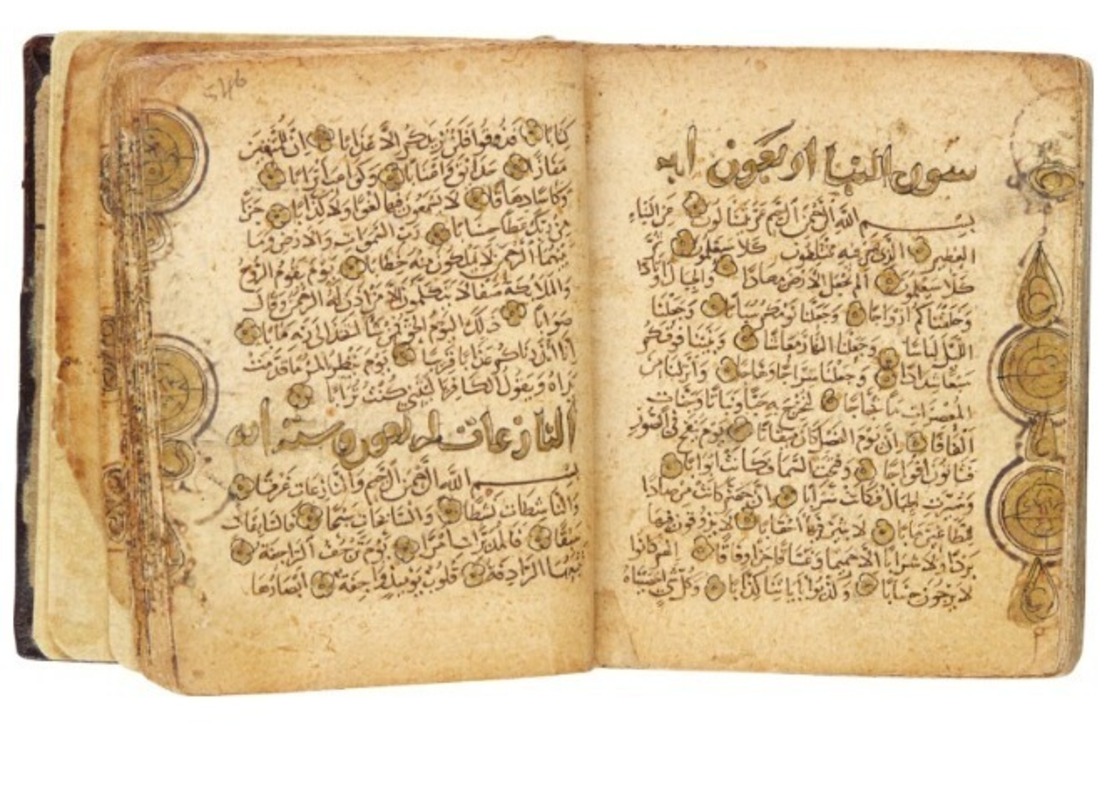 سورة النبا اربعون اية
بسم الله الرحمن الرحيم عم يتسالون عن النباء
العظيم الذي هم فيه مختلفون كلا سيعلمون ثم
كلا سيعلمون الم نجعل الارض مهادا والجبال اوتادا
وخلقناكم ازواجا وجعلنا نومكم سباتا وجعلنا
الليل لباسا وجعلنا النهار معاشا وبنينا فوقكم
سبعا شدادا وجعلنا سراجا وهاجا وانزلنا من
المعصرات ما ثجاجا لنخرج به حبا ونباتا وجنات
الفافا ان يوم الفصل كان ميقاتا يوم ينفخ في الصور
فتاتون افواجا وفتحت السما فكانت ابوابا
وسيرت الجبال فكانت سرابا ان جهنم كانت مرصادا
للطاغين مابا لابثين فيها احقابا لا يذوقون فيها
بردا ولا شرابا الا حميما وغساقا جزا وفاقا انهم كانوا
لا يرجون حسابا وكذبوا باياتنا كذابا وكل شي احصيناه
546
كتابا فذوقوا فلن نزيدكم الا عذابا ان للمتقين
مفازا حدائق واعنابا وكواعب اترابا
وكاسا دهاقا لا يسمعون فيها لغوا ولا كذابا جزا
من ربك عطا حسابا رب السموات والارض وما
بينهما الرحمن لا يملكون منه خطابا يوم يقوم الروح
والملائكة صفا لا يتكلمون الا من اذن له الرحمن وقال
صوابا ذلك اليوم الحق فمن شا اتخذ الى ربه مابا
انا انذرناكم عذابا قريبا يوم ينظر المر ما قدمت
يداه ويقول الكافر يا ليتني كنت ترابا
النازعات اربعون وست اية
بسم الله الرحمن الرحيم والنازعات غرقا
والناشطات نشطا والسابحات سبحا فالسابقات
سبقا فالمدبرات امرا يوم ترجف الراجفة
تتبعها الرادفة قلوب يومئذ واجفة ابصارها